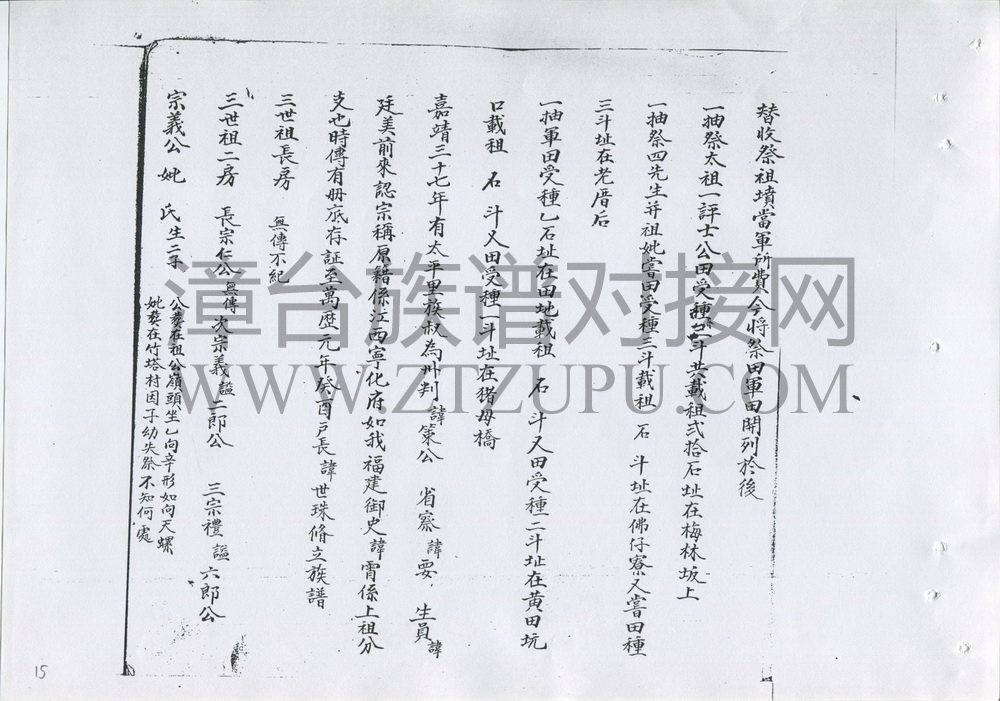 替收祭祖墳當軍所費今將祭田軍田開列於後
一抽祭太祖一評士公田受種二斗共載租弍拾石址在梅林坂上
一抽祭四先生并祖妣嘗田受種三斗載租 石 斗址在佛仔寮又嘗田種
三斗址在老厝后
一抽軍田受種乙石址在田地載租 石 斗又田受種二斗址在黄田坑
口載租 石 斗又田受種一斗址在猪母橋
嘉靖三十七年有太平里族叔為州判諱策公 省察諱要 生員諱
廷美前來認宗稱原籍係江西寧化府如我福建御史諱霄係上祖分
支也時傳有册底存証至萬歷元年癸酉戸長諱世珠脩立族譜
三世祖長房 無傳不紀
三世祖二房 長宗仁公無傳 次宗義謚二郎公 三宗禮謚六郎公
宗義公 妣 氏生二子 公葬在祖公嶺頭坐乙向辛形如向天螺
妣葬在竹塔村因子幼失祭不知何處
15
漳台族谱对接网
WWW.ZTZUPU.COM